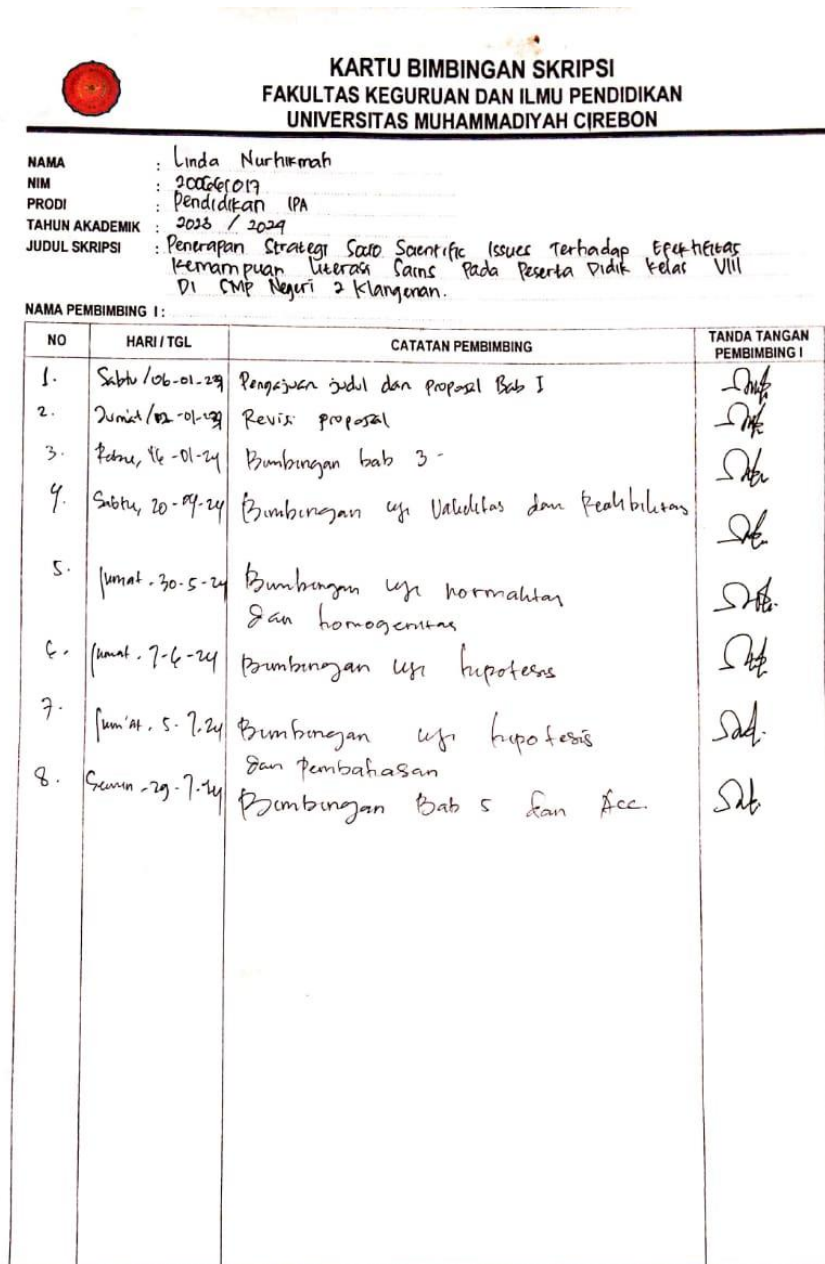 KARTU BIMBINGAN SKRIPSI
FAKULTAS KEGURUAN DAN ILMU PENDIDIKAN
UNIVERSITAS MUHAMMADIYAH CIREBON
NAMA : Linda Nurhikmah
NIM :
PRODI : Pendidikan IPA
TAHUN AKADEMIK : 2023 / 2024
JUDUL SKRIPSI : Penerapan Strategi Socio Scientific Issues Terhadap Efektifitas
Kemampuan Literasi Sains Pada Peserta Didik Kelas VIII
Di SMP Negeri 2 Klangenan.
NAMA PEMBIMBING I :
NO HARI / TGL CATATAN PEMBIMBING TANDA TANGAN PEMBIMBING I
1. Sabtu /06-01-24 Pengajuan judul dan proposal Bab I
2. Jumat / -01-24 Revisi proposal
3. Rabu, -01-24 Bimbingan bab 3 -
4. Sabtu, 20- -24 Bimbingan uji Validitas dan Realibilitas
5. Jumat . 30-5-24 Bimbingan uji normalitas
dan homogenitas
6. Jumat . 7-6-24 Bimbingan uji hipotesis
7. Jum'At . 5-7.24 Bimbingan uji hipotesis
dan Pembahasan
8. Senin -29-7-24 Bimbingan Bab 5 dan Acc.